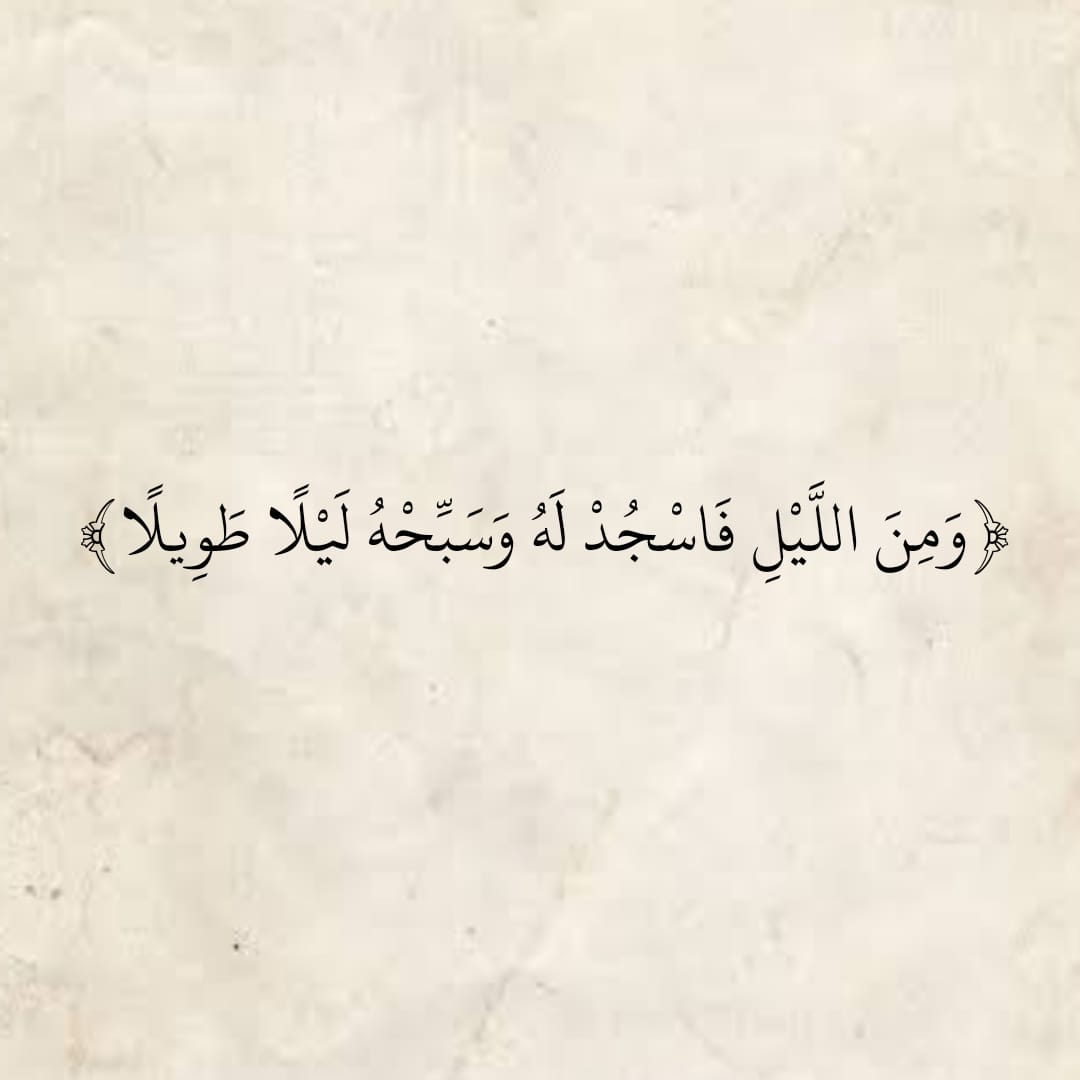 ﴿وَمِنَ اللَّيْلِ فَاسْجُدْ لَهُ وَسَبِّحْهُ لَيْلًا طَوِيلًا﴾